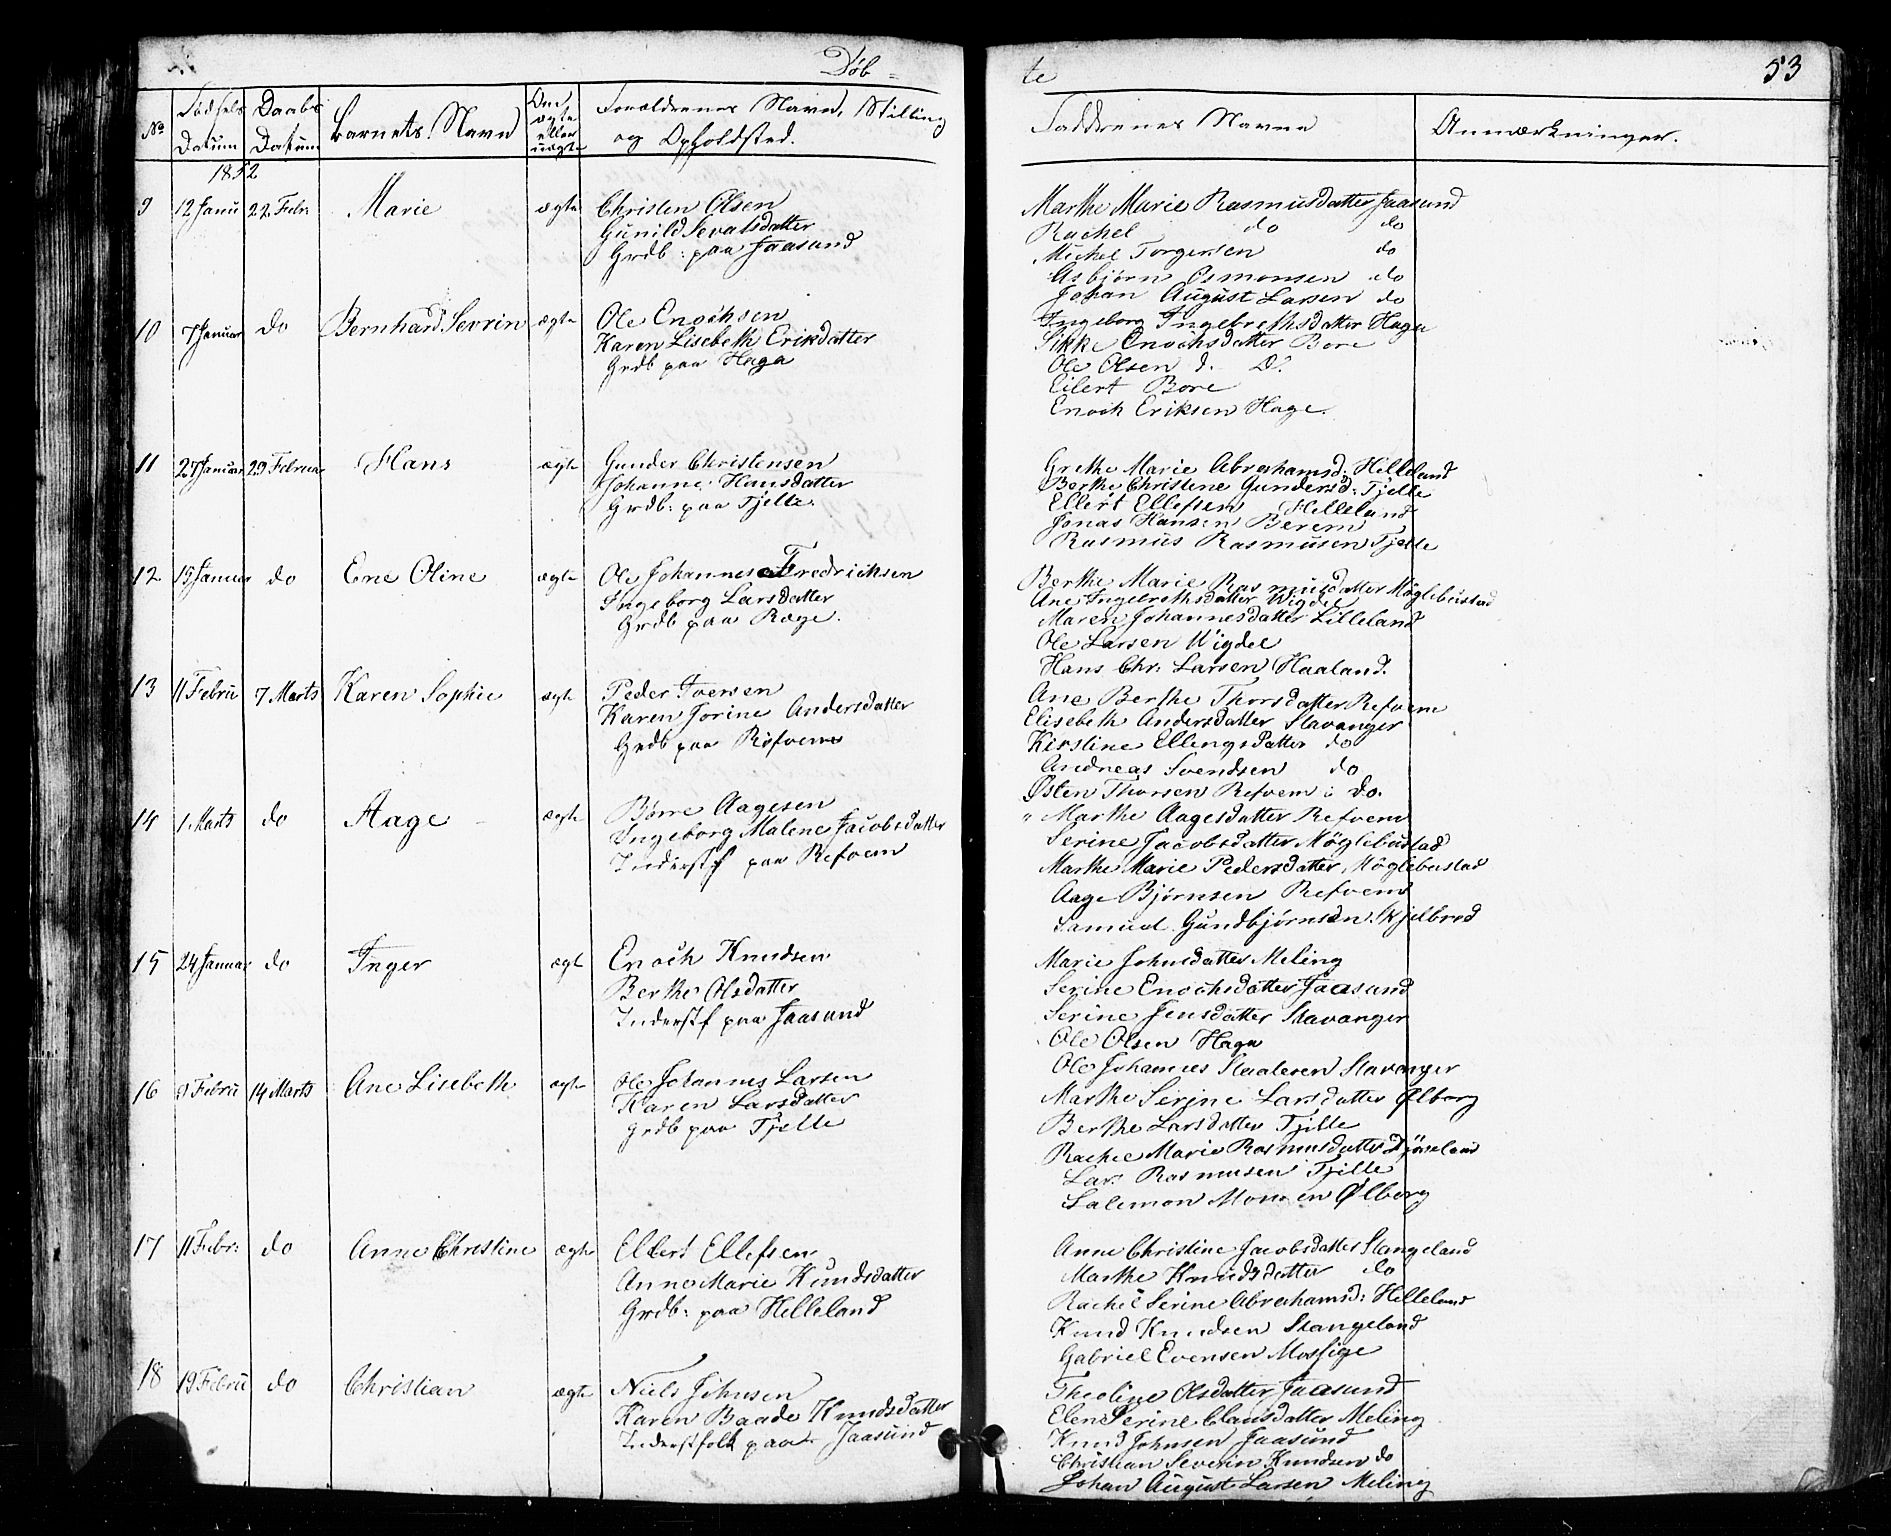 Døb- te 53
No Fødsels Datum Daabs Datum Barnets Navn Om ægte eller uægte Forældrenes Navn, Stilling og Opholdsted. Faddrenes Navne Anmærkninger.
1852
9 12 Janu 22 Febr Marie ægte Christen Olsen
Gunild Sevalsdatter
Grdb: paa Jaasund
Marthe Marie Rasmusdatter Jaasund
Rachel do do
Michel Torgersen do
Asbjørn Osmonsen do
Johan August Larsen do
10 7 Januar do Bernhard Sevrin ægte Ole Enochsen
Karen Lisebeth Eriksdatter
Grdb paa Haga
Ingeborg Ingebrethsdatter Haga
Sikke Enochsdatter Bore
Ole Olsen d. D.
Eilert Bore
Enoch Eriksen Hage.
11 27 Januar 29 Februar Hans ægte Gunder Christensen
Johanne Hansdatter
Grdb: paa Tjelte.
Grethe Marie Abrahamsd: Helleland
Berthe Christene Gundersd: Tjelte
Ellert Ellefsen Helleland
Jonas Hansen Berem
Rasmus Rasmusen Tjelte
12 15 Januar do Ene Oline ægte Ole Johannes Fredriksen
Ingeborg Larsdatter
Grdb paa Ræge.
Berthe Marie Rasmusdatter Møglebustad
Ane Ingebrethsdatter Wigdel
Maren Johannesdatter Lilleland
Ole Larsen Wigdel
Hans Chr: Larsen Haaland.
13 11 Febru 7 Marts Karen Sophie ægte Peder Iversen
Karen Jorine Andersdatter
Grdb paa Røfvem
Ane Berthe Thorsdatter Refvem
Elisebeth Andersdatter Stavanger
Kirstine Ellingsdatter do
Andreas Svendsen do
Østen Thorsen Refvem: do.
14 1 Marts do Aage ægte Børre Aagesen
Ingeborg Malene Jacobsdatter
Inderstf paa Refvem
" Marthe Aagesdatter Refvem
Serine Jacobsdatter Møglebustad
Marthe Marie Pedersdatter Møglebustad
Aage Bjørnsen Refvem
Samuel Gundbjørnsen Skjelbred
15 24 Januar do Inger ægt Enoch Knudsen
Berthe Olsdatter
Inderstf paa Jaasund
Marie Johnsdatter Meling
Serine Enochsdatter Jaasund
Serine Jensdatter Stavanger
Ole Olsen Haga
Ole Johannes Staalesen Stavanger
16 9 Febru 14 Marts Ane Lisebeth ægte Ole Johannes Larsen
Karen Larsdatter
Grdb paa Tjelte
Marthe Serine Larsdatter Ølborg
Berthe Larsdatter Tjelte
Rachel Marie Rasmusdatter
Lars Rasmusen Tjelte
Salemon Monsen Ølborg
17 11 Febr: do Anne Christine ægte Ellert Ellefsen
Anne Marie Kundsdatter
Grdb: paa Helleland
Anne Christine Jacobsdatter Stangeland
Marthe Knudsdatter do
Rachel Serine Abrahamsd: Helleland
Knud Knudsen Stangeland
Gabriel Evensen Mossige
18 19 Febru do Christian ægte Niels Johnsen
Karen Baade Knudsdatter
Inderstfolk paa Jaasund
Theoline Olsdatter Jaasund
Elene Serine Clausdatter Meling
Knud Johnsen Jaasund
Christian Severin Knudsen do
Johan August Larsen Meling